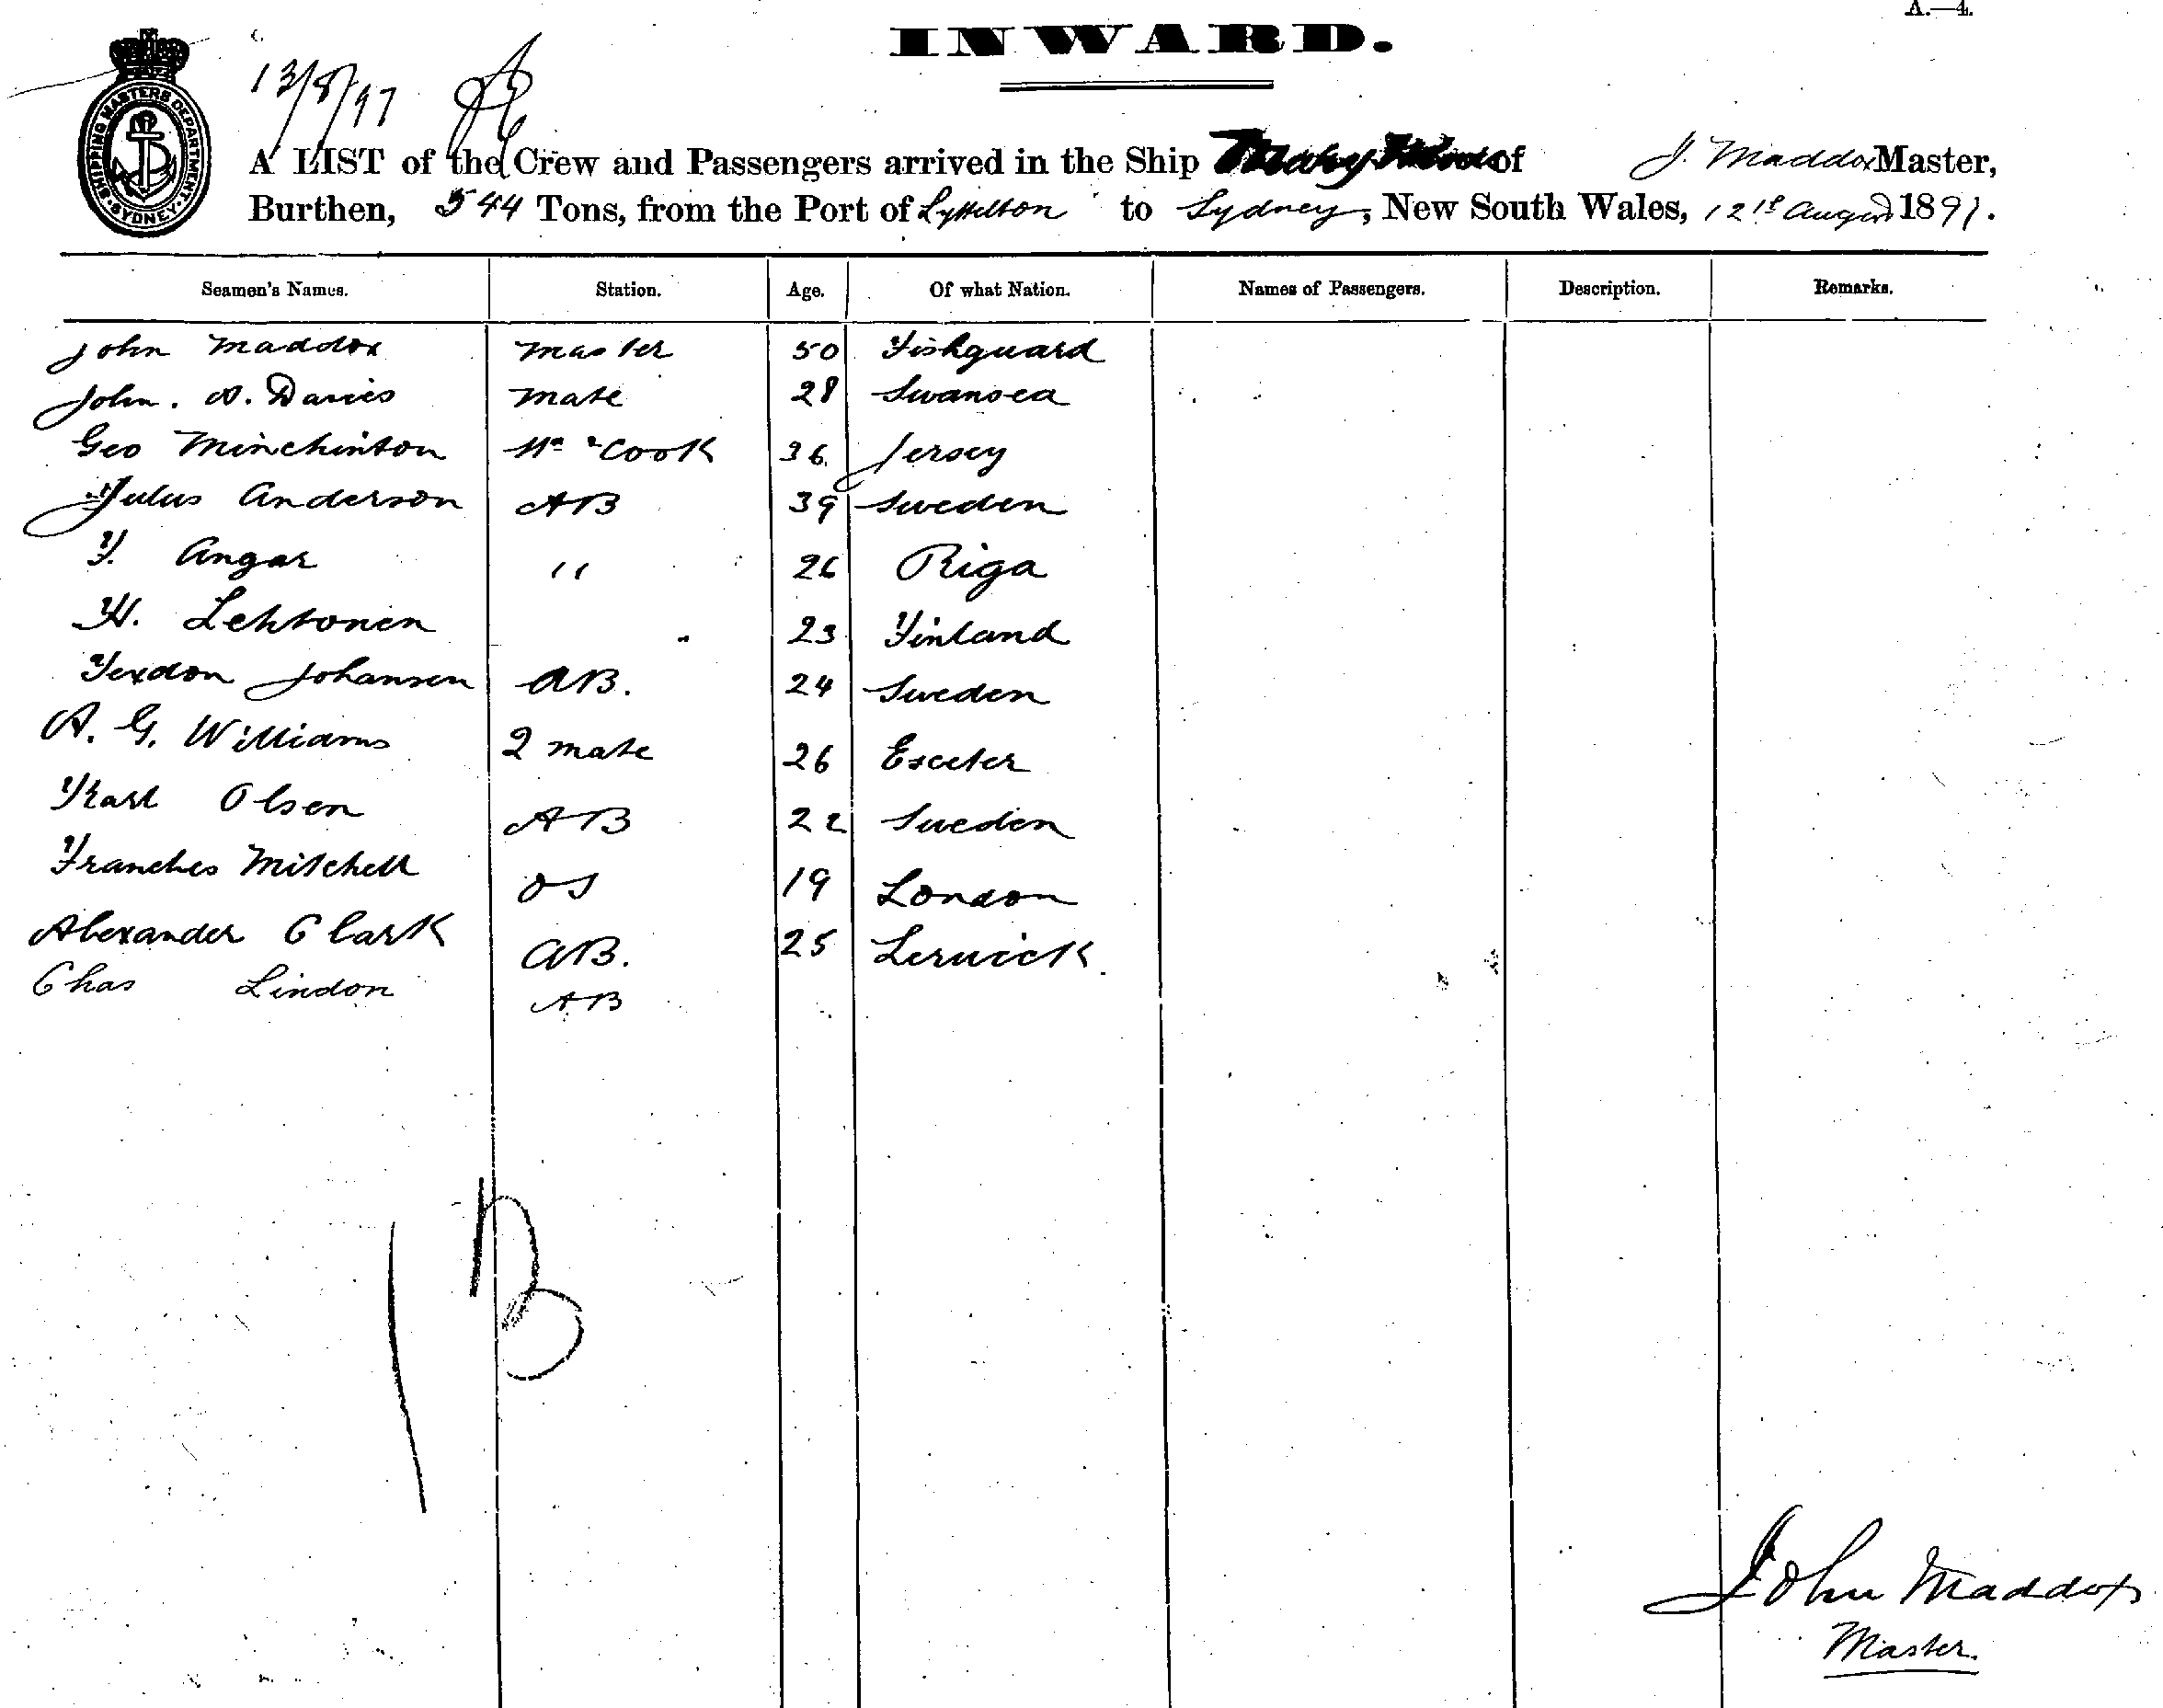 A.—4.
INWARD.
SHIPPING MASTERS DEPARTMENT
SYDNEY
13/8/97
A LIST of the Crew and Passengers arrived in the Ship Mary of J. Maddox Master,
Burthen, 544 Tons, from the Port of Lyttelton to Sydney, New South Wales, 12th August 1897.
Seamen's Names. Station. Age. Of what Nation. Names of Passengers. Description. Remarks.
John Maddox master 50 Fishguard
John. Davies mate 28 Swansea
Geo Minchinton Cook 36 Jersey
Julus Anderson AB 39 Sweden
Angar " 26 Riga
Lehtonen 23 Finland
Johansen AB. 24 Sweden
A. G. Williams 2 mate 26 Exceter
Karl Olsen AB 22 Sweden
Franches Mitchell OS 19 London
Alexander Clark AB. 25 Lerwick.
Chas Lindon AB
John Maddox
Master.